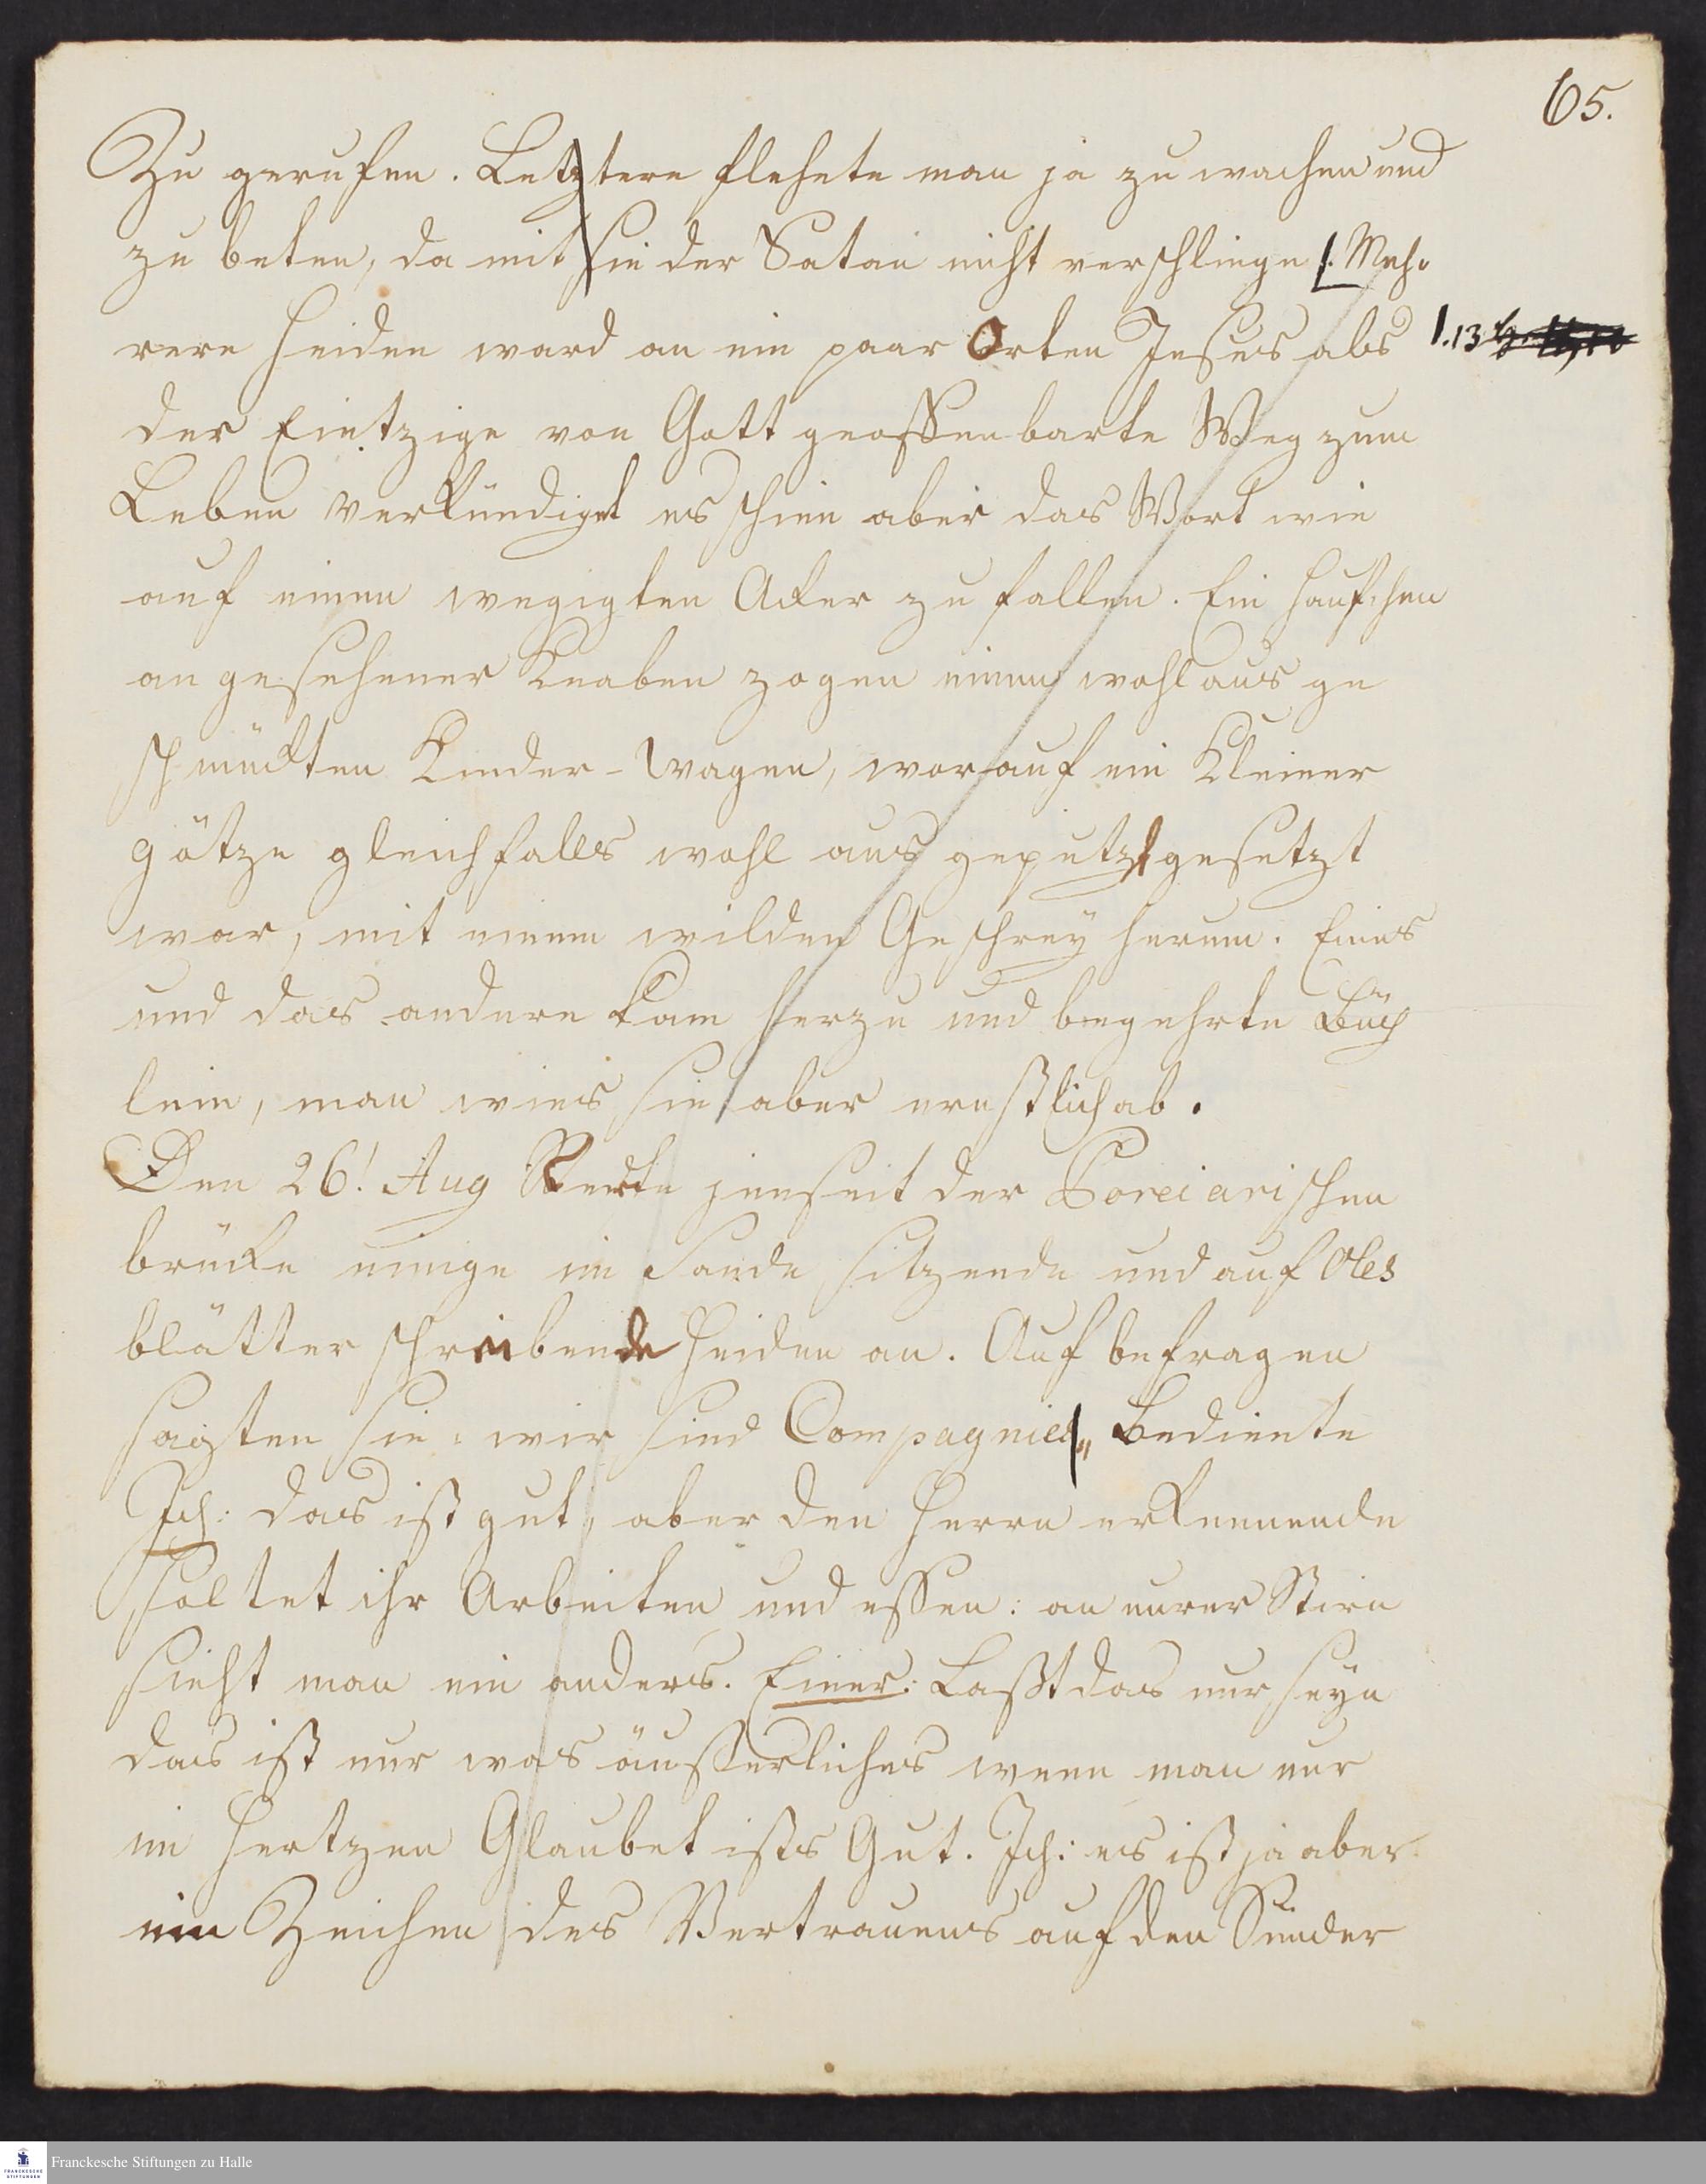 65.
Zu gerufen. Letztere flehete man ja zu wachen und
zu beten, da mit sie der Satan nicht verschlinge. Meh-
rere Heiden ward an ein paar Orten Jesus als
1.13
der Eintzige von Gott geoffenbarte Weg zum
Leben verkündiget es schien aber das Wort wie
auf einen wegigten Acker zu fallen. Ein Häufchen
an gesehener Knaben zogen einen wohl aus ge
schmückten Kinder-Wagen, worauf ein Kleiner
götze gleichfalls wohl aus geputzt gesetzt
war, mit einem wilden Geschrey herum. Eines
und das andere kam herzu und begehrte Büch
lein, man wies sie aber ernstlich ab.
Den 26! Aug Redte jenseit der Poreiarischen
brücke einige im Sande sitzende und auf Oles
blätter schreibende Heiden an. Auf befragen
sagten sie: wir sind Compagnie Bediente
Ich: das ist gut, aber den Herrn erkennende
soltet ihr Arbeiten und essen: an eurer Stirn
sieht man ein anders. Einer: Laßt das nur seyn
das ist nur was äusserliches wenn man nur
im Hertzen Glaubet ists Gut. Ich: es ist ja aber
ein Zeichen des Vertrauens auf den Sünder
Franckesche Stiftungen zu Halle